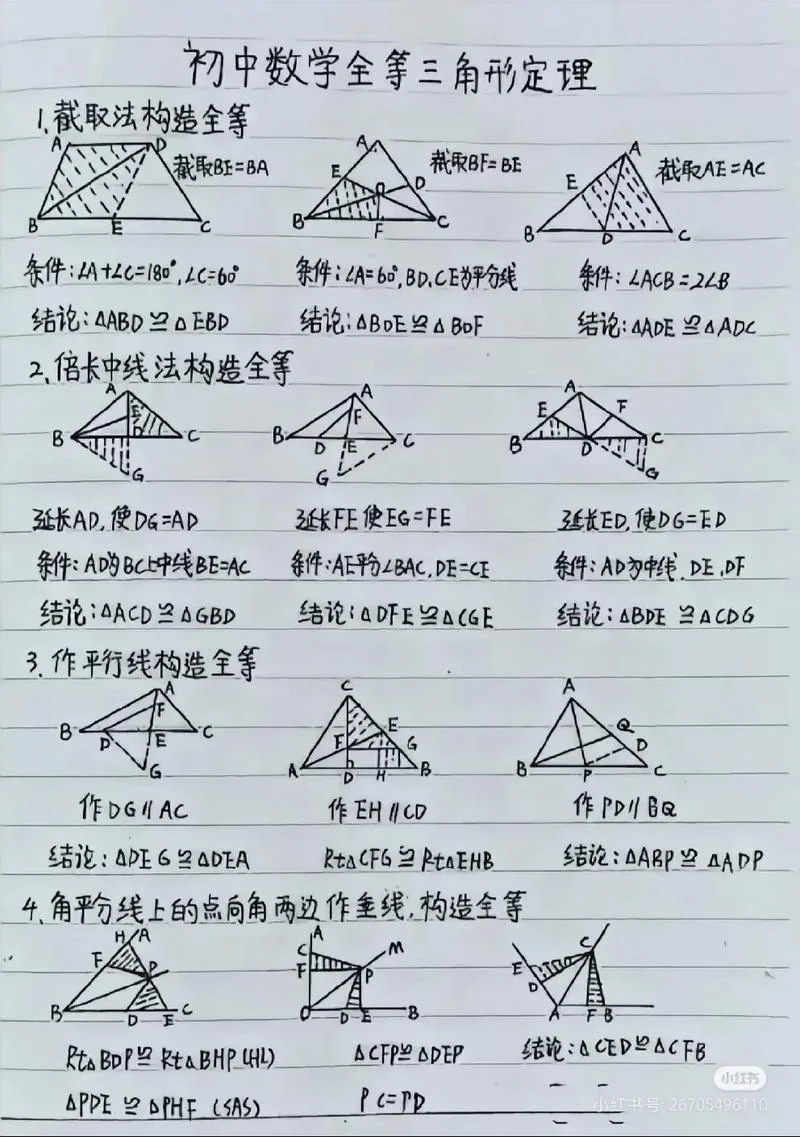 初中数学全等三角形定理
1.截取法构造全等
A D 截取BE=BA
B E C
A E D O 截取BF=BE
B F C
A E 截取AE=AC
B D C
条件:∠A+∠C=180°,∠C=60° 条件:∠A=60°,BD.CE为平分线 条件:∠ACB=2∠B
结论:△ABD≌△EBD 结论:△BOE≌△BOF 结论:△ADE≌△ADC
2.倍长中线法构造全等
A E B D C G
A F B D E C G
A E F B D C G
延长AD,使DG=AD 延长FE使EG=FE 延长ED,使DG=ED
条件:AD为BC上中线BE=AC 条件:AE平分∠BAC,DE=CE 条件:AD为中线.DE,DF
结论:△ACD≌△GBD 结论:△DFE≌△CGE 结论:△BDE≌△CDG
3.作平行线构造全等
A F B D E C G
C E F G A D H B
A Q D B P C
作DG∥AC 作EH∥CD 作PD∥BQ
结论:△DEG≌△DEA Rt△CFG≌Rt△EHB 结论:△ABP≌△ADP
4.角平分线上的点向角两边作垂线,构造全等
H A F P B D E C
A C F P M O D E B
E C D A F B
Rt△BDP≌Rt△BHP(HL) △CFP≌△DEP 结论:△CED≌△CFB
△PDE≌△PHF(SAS) PC=PD
小红书
小红书号:26705496110